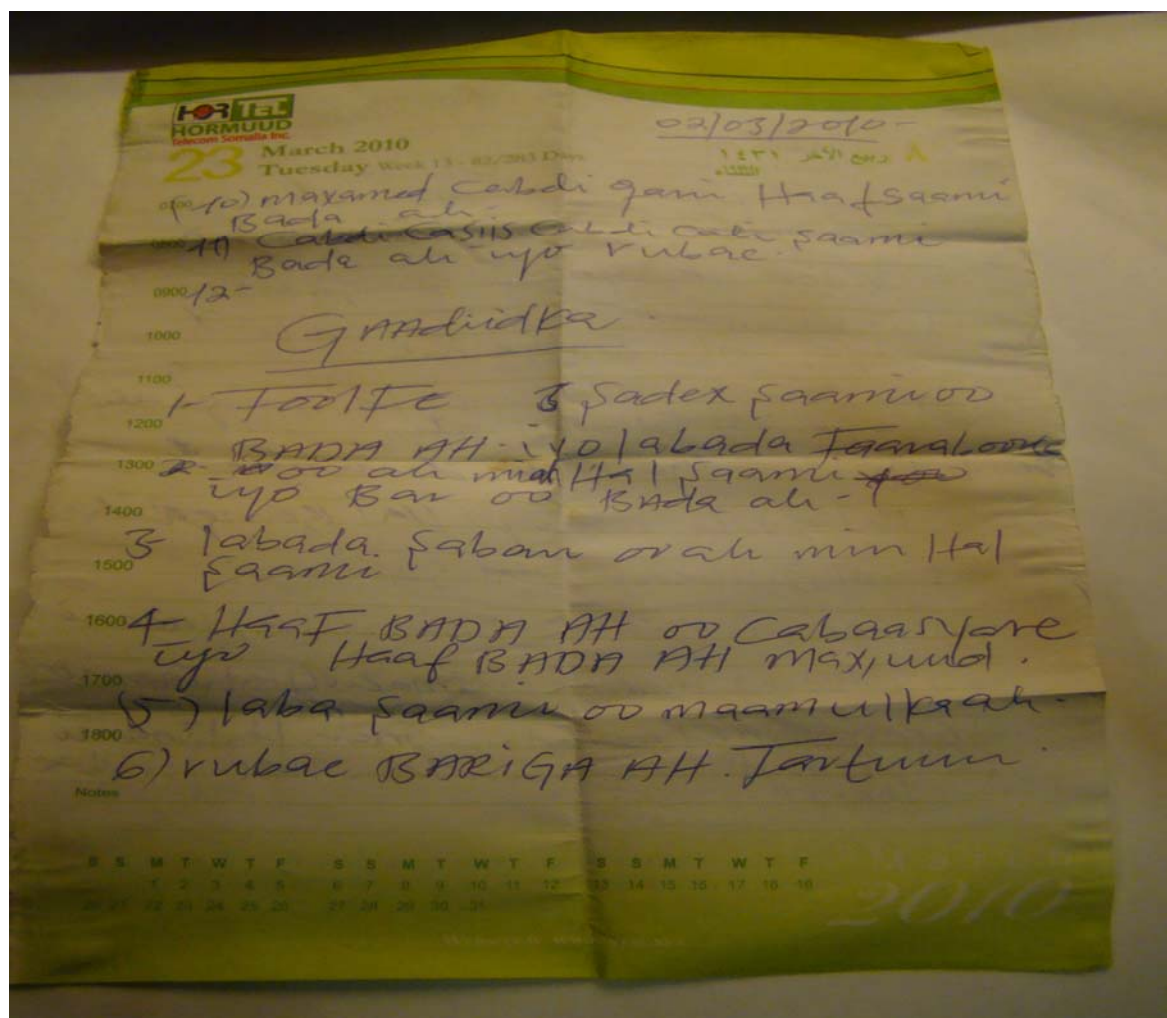 HOR TEL
HORMUUD
Telecom Somalia Inc.
02/03/2010-
23 March 2010
Tuesday Week 13 - 82/283 Days
٨ ربيع الآخر ١٤٣١
10) maxamed Cabdi gani Haaf Saami
Bada ah.
11) Cabdi Casiis Cabdi Cali Saami
Bada ah iyo rubac.
0900 12-
GAAdiidka
1000
1100
1- FoolFe 3 Sadex Saami oo
1200
BADA AH - iyo labada
1300 2- oo ah min Hal Saami
iyo Bar oo BAda ah -
1400
3- labada Saban oo ah min Hal
1500
Saami
1600 4- HAAF BADA AH oo Cabaasyare
iyo Haaf BADA AH Max,uud.
1700
(5) laba Saami oo maamulka ah.
1800
6) rubac BARIGA AH. Tartuun
Notes
S S M T W T F S S M T W T F S S M T W T F
1 2 3 4 5 6 7 8 9 10 11 12 13 14 15 16 17 18 19
20 21 22 23 24 25 26 27 28 29 30 31
MARCH
2010